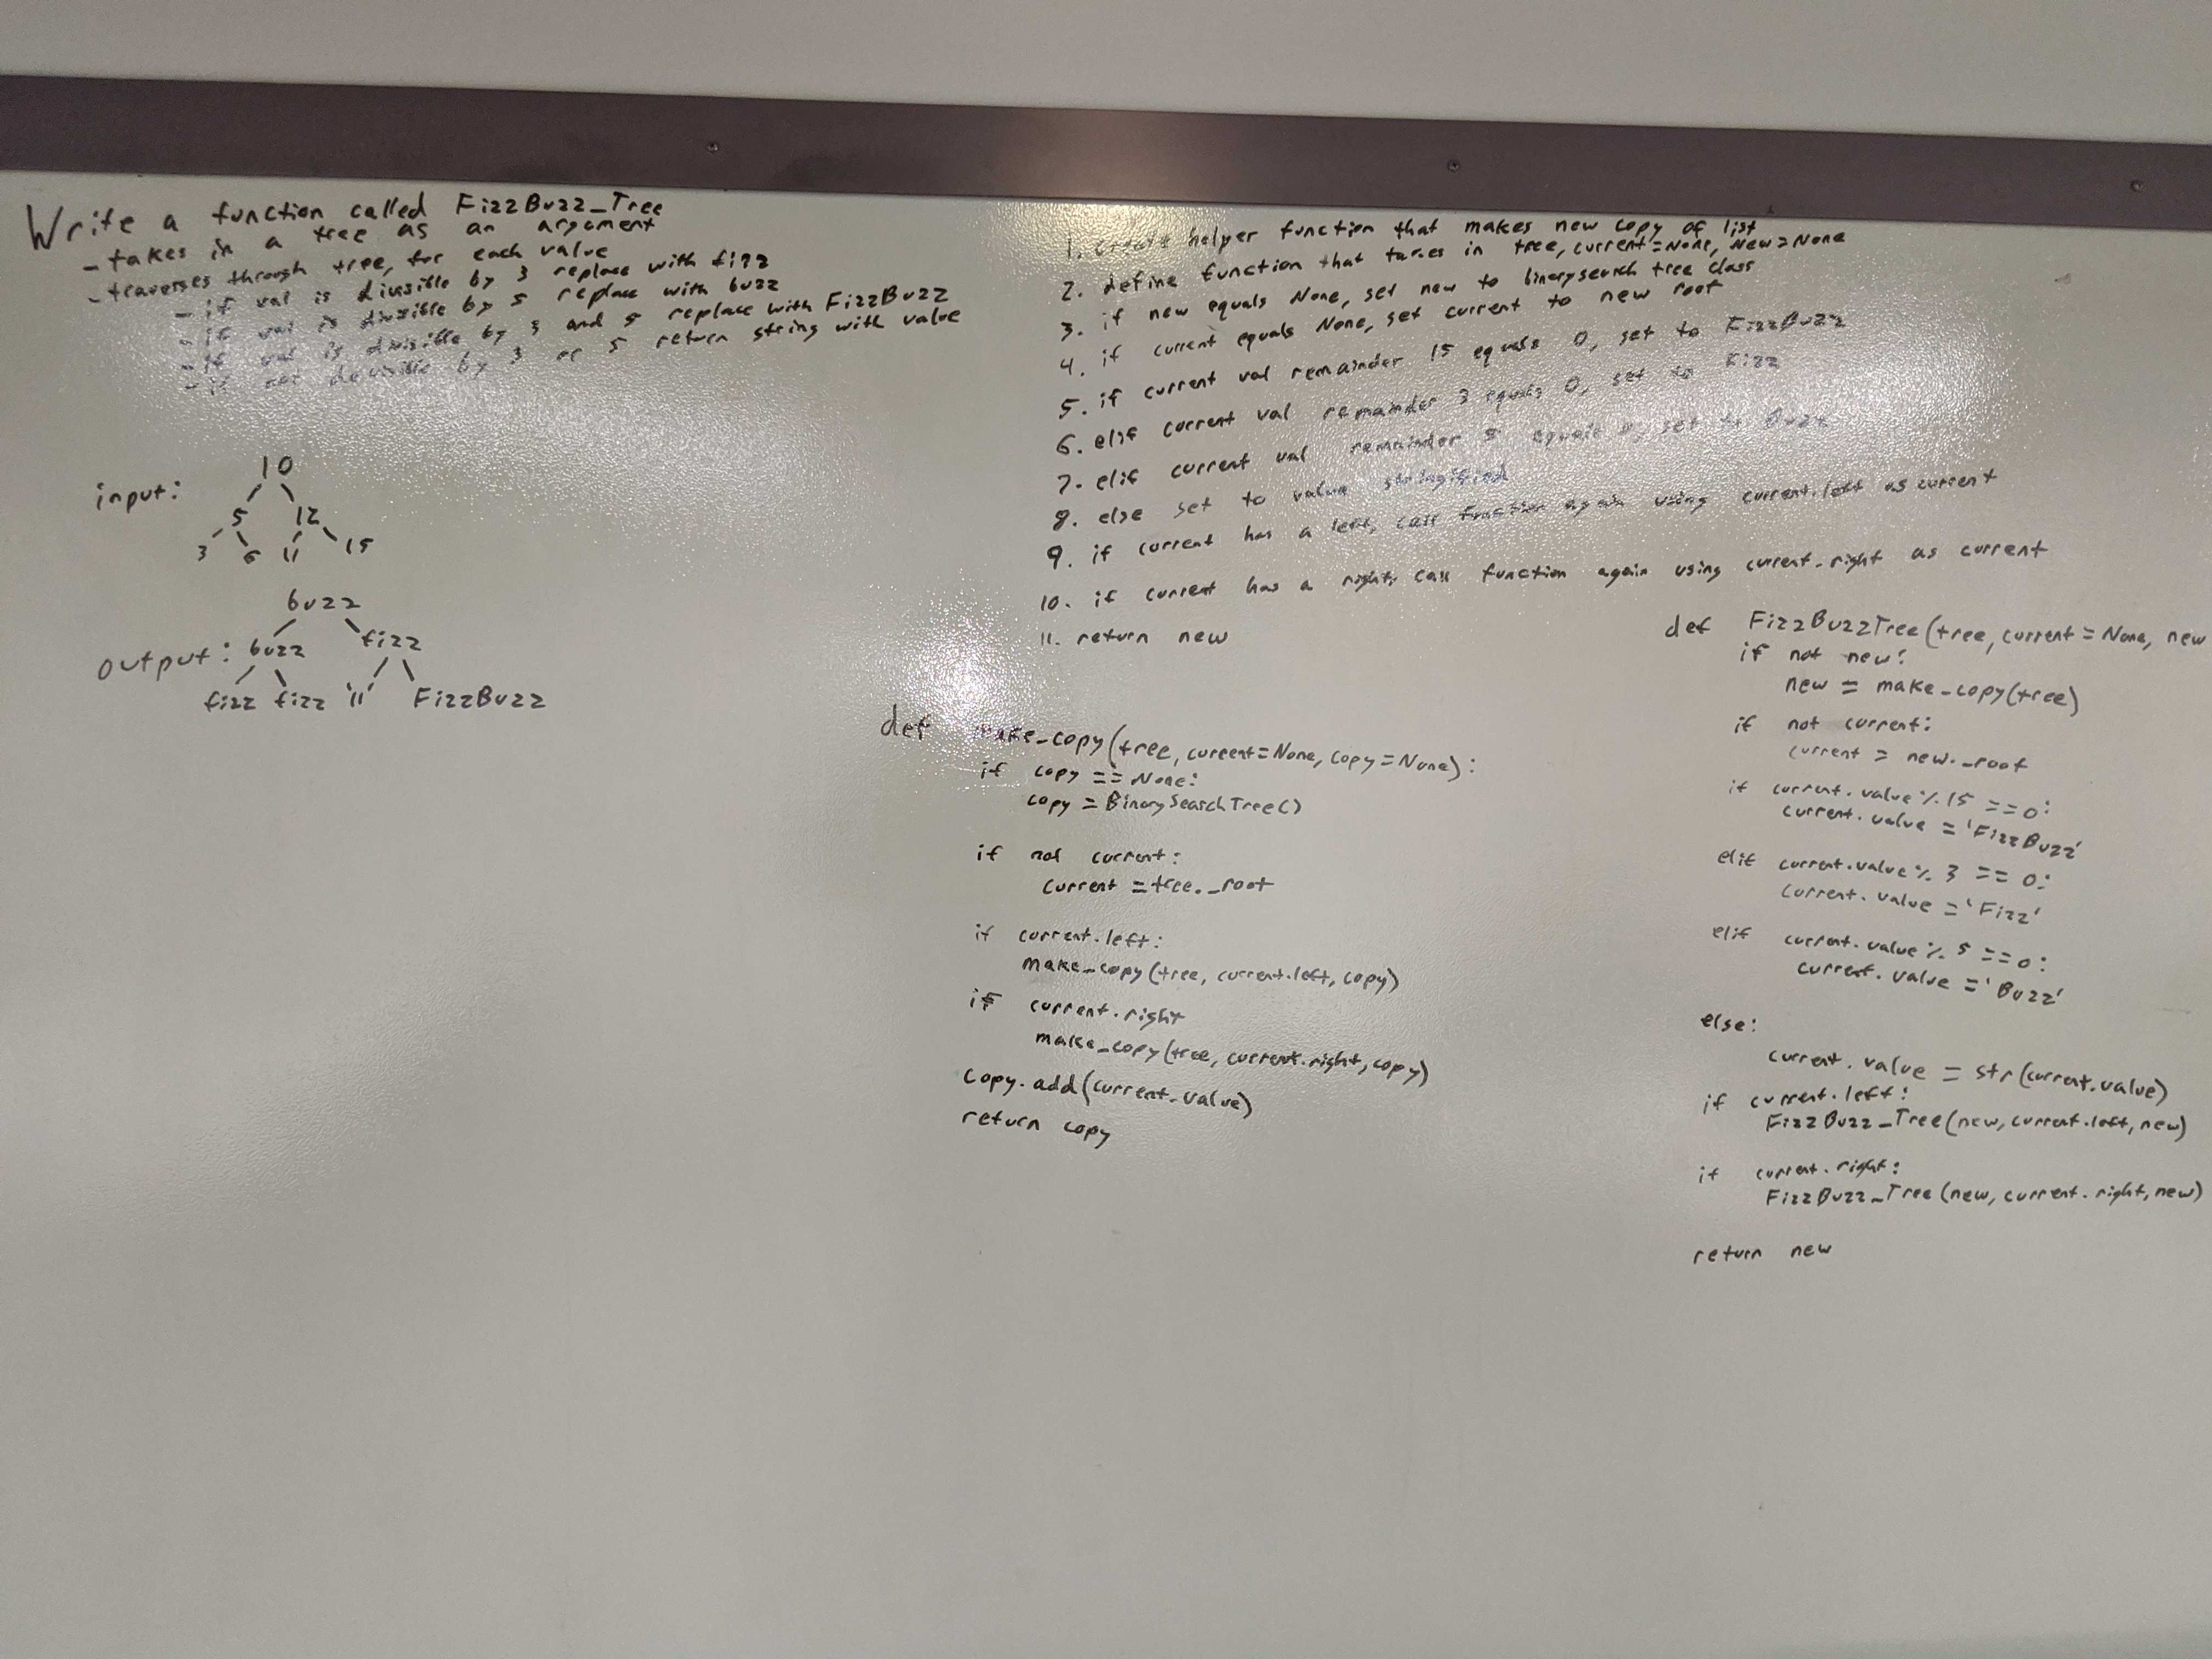 Write a function called FizzBuzz_Tree
- takes in a tree as an argument
- traverses through tree, for each value
- if val is divisible by 3 replace with fizz
- if val is divisible by 5 replace with buzz
- if val is divisible by 3 and 5 replace with FizzBuzz
- if not devisible by 3 or 5 return string with value
input:
10
5 12
3 6 11 15
output:
buzz
buzz fizz
fizz fizz '11' FizzBuzz
1. create helper function that makes new copy of list
2. define function that takes in tree, current=None, New=None
3. if new equals None, set new to binarysearch tree class
4. if current equals None, set current to new root
5. if current val remainder 15 equals 0, set to FizzBuzz
6. elif current val remainder 3 equals 0, set to Fizz
7. elif current val remainder 5 equals 0, set to Buzz
8. else set to value stringified
9. if current has a left, call function again using current.left as current
10. if current has a right, call function again using current.right as current
11. return new
def make_copy(tree, current=None, copy=None):
if copy == None:
copy = BinarySearchTree()
if not current:
current = tree._root
if current.left:
make_copy(tree, current.left, copy)
if current.right
make_copy(tree, current.right, copy)
copy.add(current.value)
return copy
def FizzBuzzTree(tree, current = None, new
if not new:
new = make_copy(tree)
if not current:
current = new._root
if current.value % 15 == 0:
current.value = 'FizzBuzz'
elif current.value % 3 == 0:
current.value = 'Fizz'
elif current.value % 5 == 0:
current.value = 'Buzz'
else:
current.value = str(current.value)
if current.left:
FizzBuzz_Tree(new, current.left, new)
if current.right:
FizzBuzz_Tree(new, current.right, new)
return new